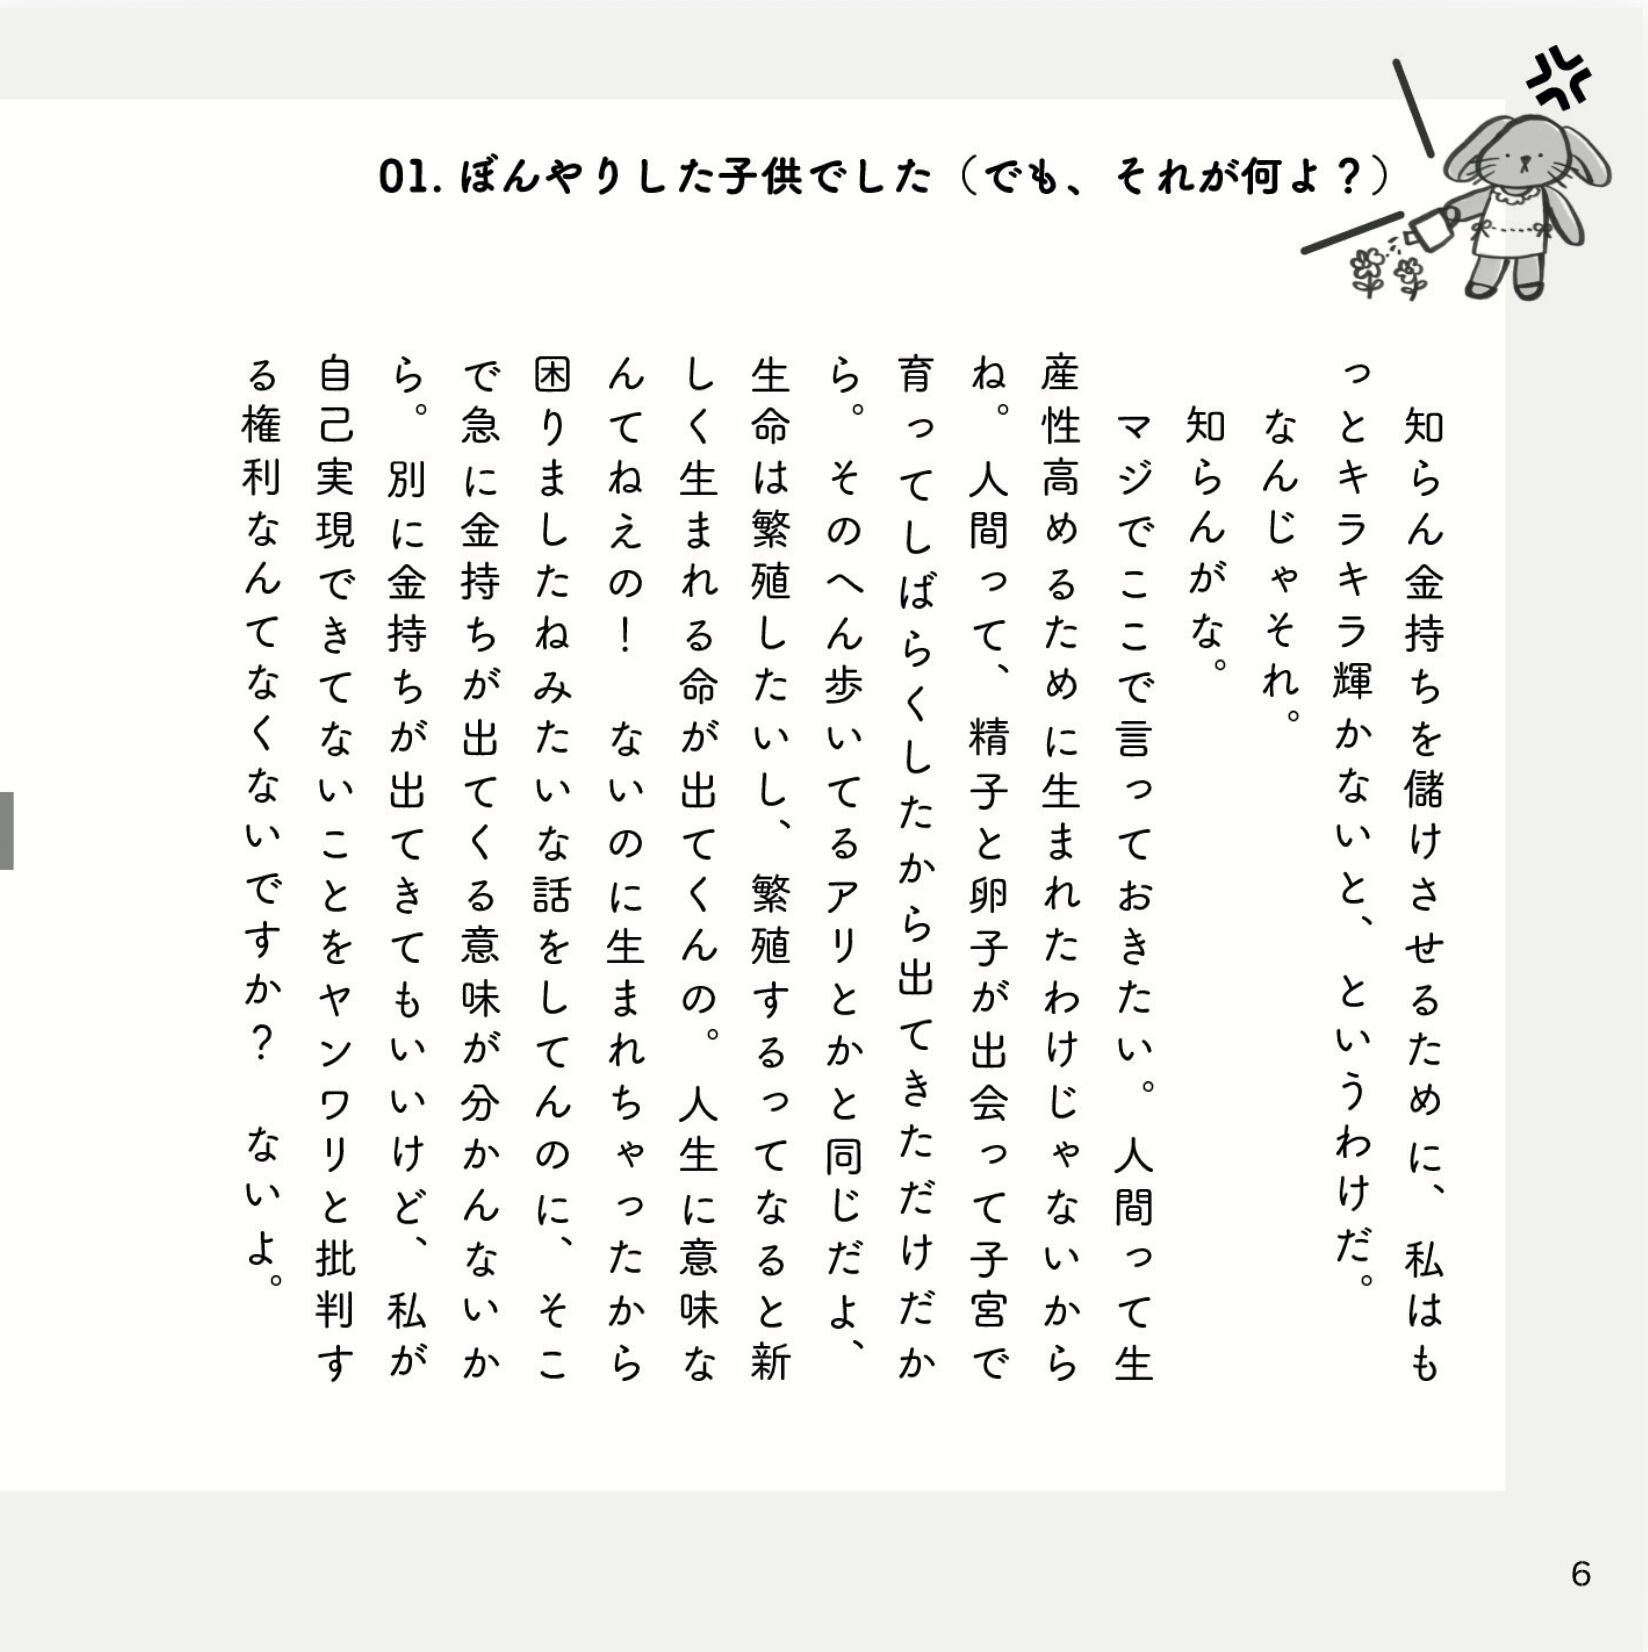 01. ぼんやりした子供でした（でも、それが何よ？）
知らん金持ちを儲けさせるために、私はも
っとキラキラ輝かないと、というわけだ。
なんじゃそれ。
知らんがな。
マジでここで言っておきたい。人間って生
産性高めるために生まれたわけじゃないから
ね。人間って、精子と卵子が出会って子宮で
育ってしばらくしたから出てきただけだか
ら。そのへん歩いてるアリとかと同じだよ、
生命は繁殖したいし、繁殖するってなると新
しく生まれる命が出てくんの。人生に意味な
んてねえの！　ないのに生まれちゃったから
困りましたねみたいな話をしてんのに、そこ
で急に金持ちが出てくる意味が分かんないか
ら。別に金持ちが出てきてもいいけど、私が
自己実現できてないことをヤンワリと批判す
る権利なんてなくないですか？　ないよ。
6